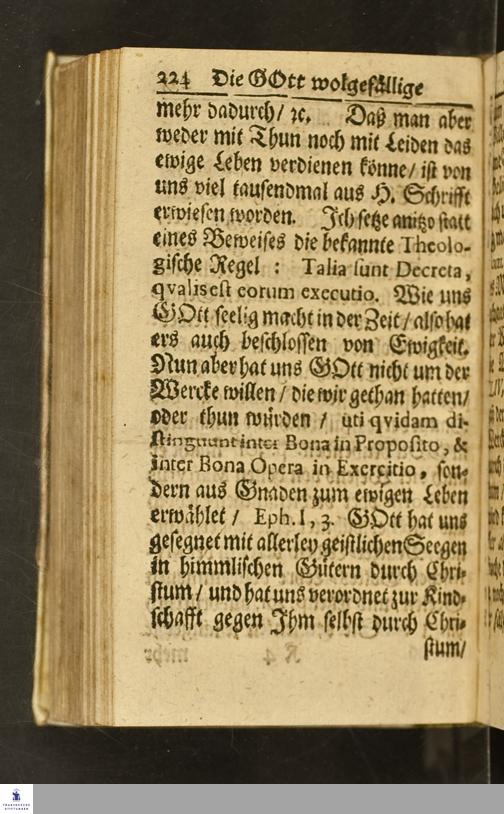 224 Die GOtt wolgefällige
mehr dadurch/ ꝛc. Daß man aber
weder mit Thun noch mit Leiden das
ewige Leben verdienen könne/ ist von
uns viel tausendmal aus H. Schrifft
erwiesen worden. Ich setze anitzo statt
eines Beweises die bekannte Theolo-
gische Regel : Talia sunt Decreta,
qvalis est eorum executio. Wie uns
GOtt seelig macht in der Zeit/ also hat
ers auch beschlossen von Ewigkeit.
Nun aber hat uns GOtt nicht um der
Wercke willen/ die wir gethan hatten/
oder thun würden/ uti qvidam di-
stinguunt inter Bona in Proposito, &
inter Bona Opera in Exercitio, son-
dern aus Gnaden zum ewigen Leben
erwählet/ Eph. I, 3. GOtt hat uns
gesegnet mit allerley geistlichen Seegen
in himmlischen Gütern durch Chri-
stum/ und hat uns verordnet zur Kind-
schafft gegen Ihm selbst durch Chri-
stum/
FRANCKESCHE
STIFTUNGEN